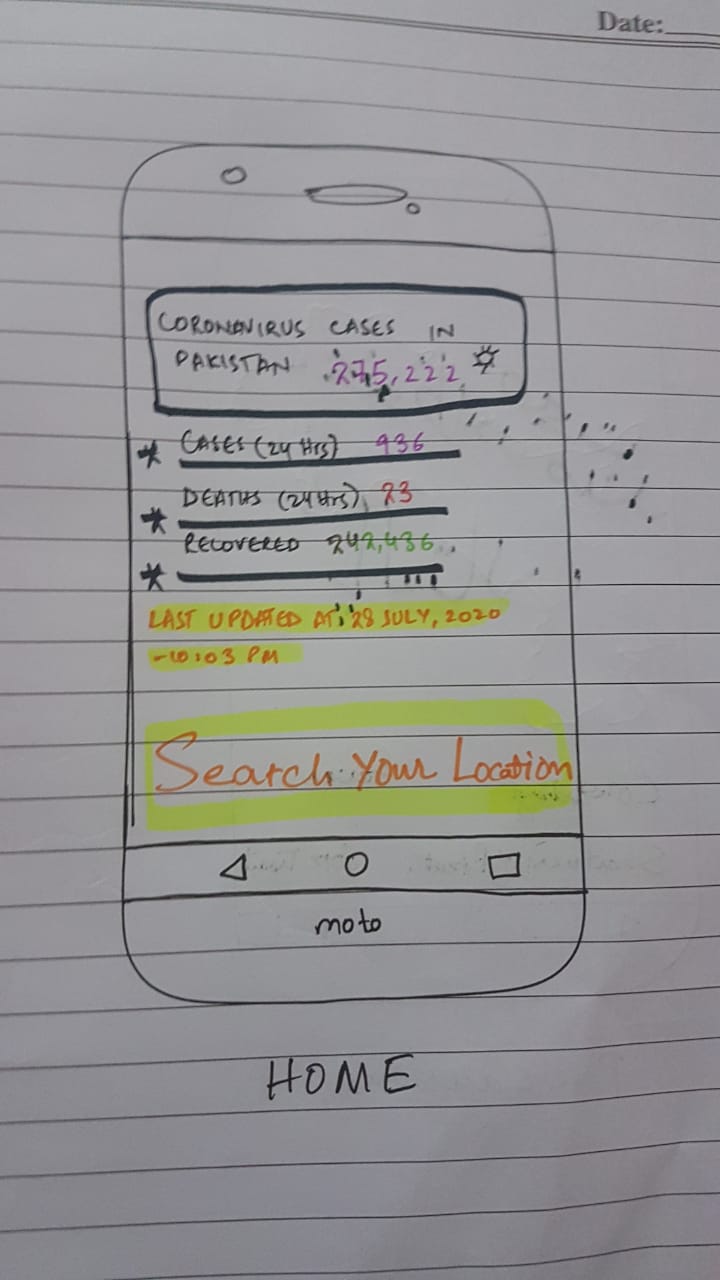 Date:
CORONAVIRUS CASES IN
PAKISTAN 275,222
CASES (24 Hrs) 936
DEATHS (24 Hrs) 23
RECOVERED 242,436
LAST UPDATED AT: 28 JULY, 2020
-10:03 PM
Search Your Location
moto
HOME